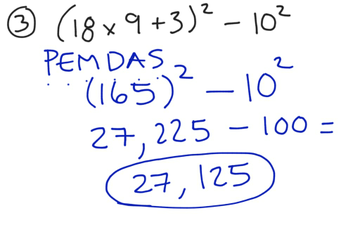 ③ (18 × 9 + 3)² − 10²
PEMDAS
(165)² − 10²
27,225 − 100 =
27,125